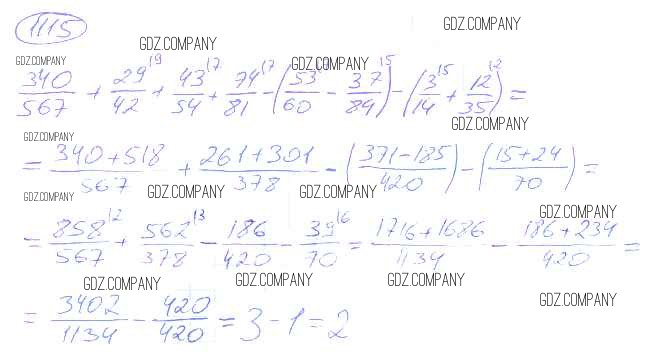 1115
GDZ.COMPANY
GDZ.COMPANY
GDZ.COMPANY
GDZ.COMPANY
340/567 + 29^(9/42 + 43^(7/54 + 74^(7/81 - (53^(7/60 - 37^(5/84) - (3^(15/14 + 12^(12/35) =
GDZ.COMPANY
GDZ.COMPANY
= 340+518/567 + 261+301/378 - (371-185/420) - (15+24/70) =
GDZ.COMPANY
GDZ.COMPANY
GDZ.COMPANY
GDZ.COMPANY
= 858^(2/567 + 562^(3/378 - 186/420 - 39^(6/70 = 1716+1686/1134 - 186+234/420 =
GDZ.COMPANY
GDZ.COMPANY
GDZ.COMPANY
GDZ.COMPANY
= 3402/1134 - 420/420 = 3 - 1 = 2